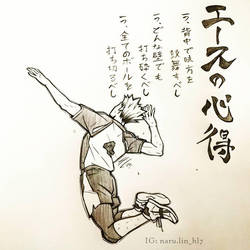 エースの心得
一つ、背中で味方を
鼓舞すべし
一つ、どんな壁でも
打ち砕くべし
一つ、全てのボールを
打ち切るべし
IG: naru.lin_hl7